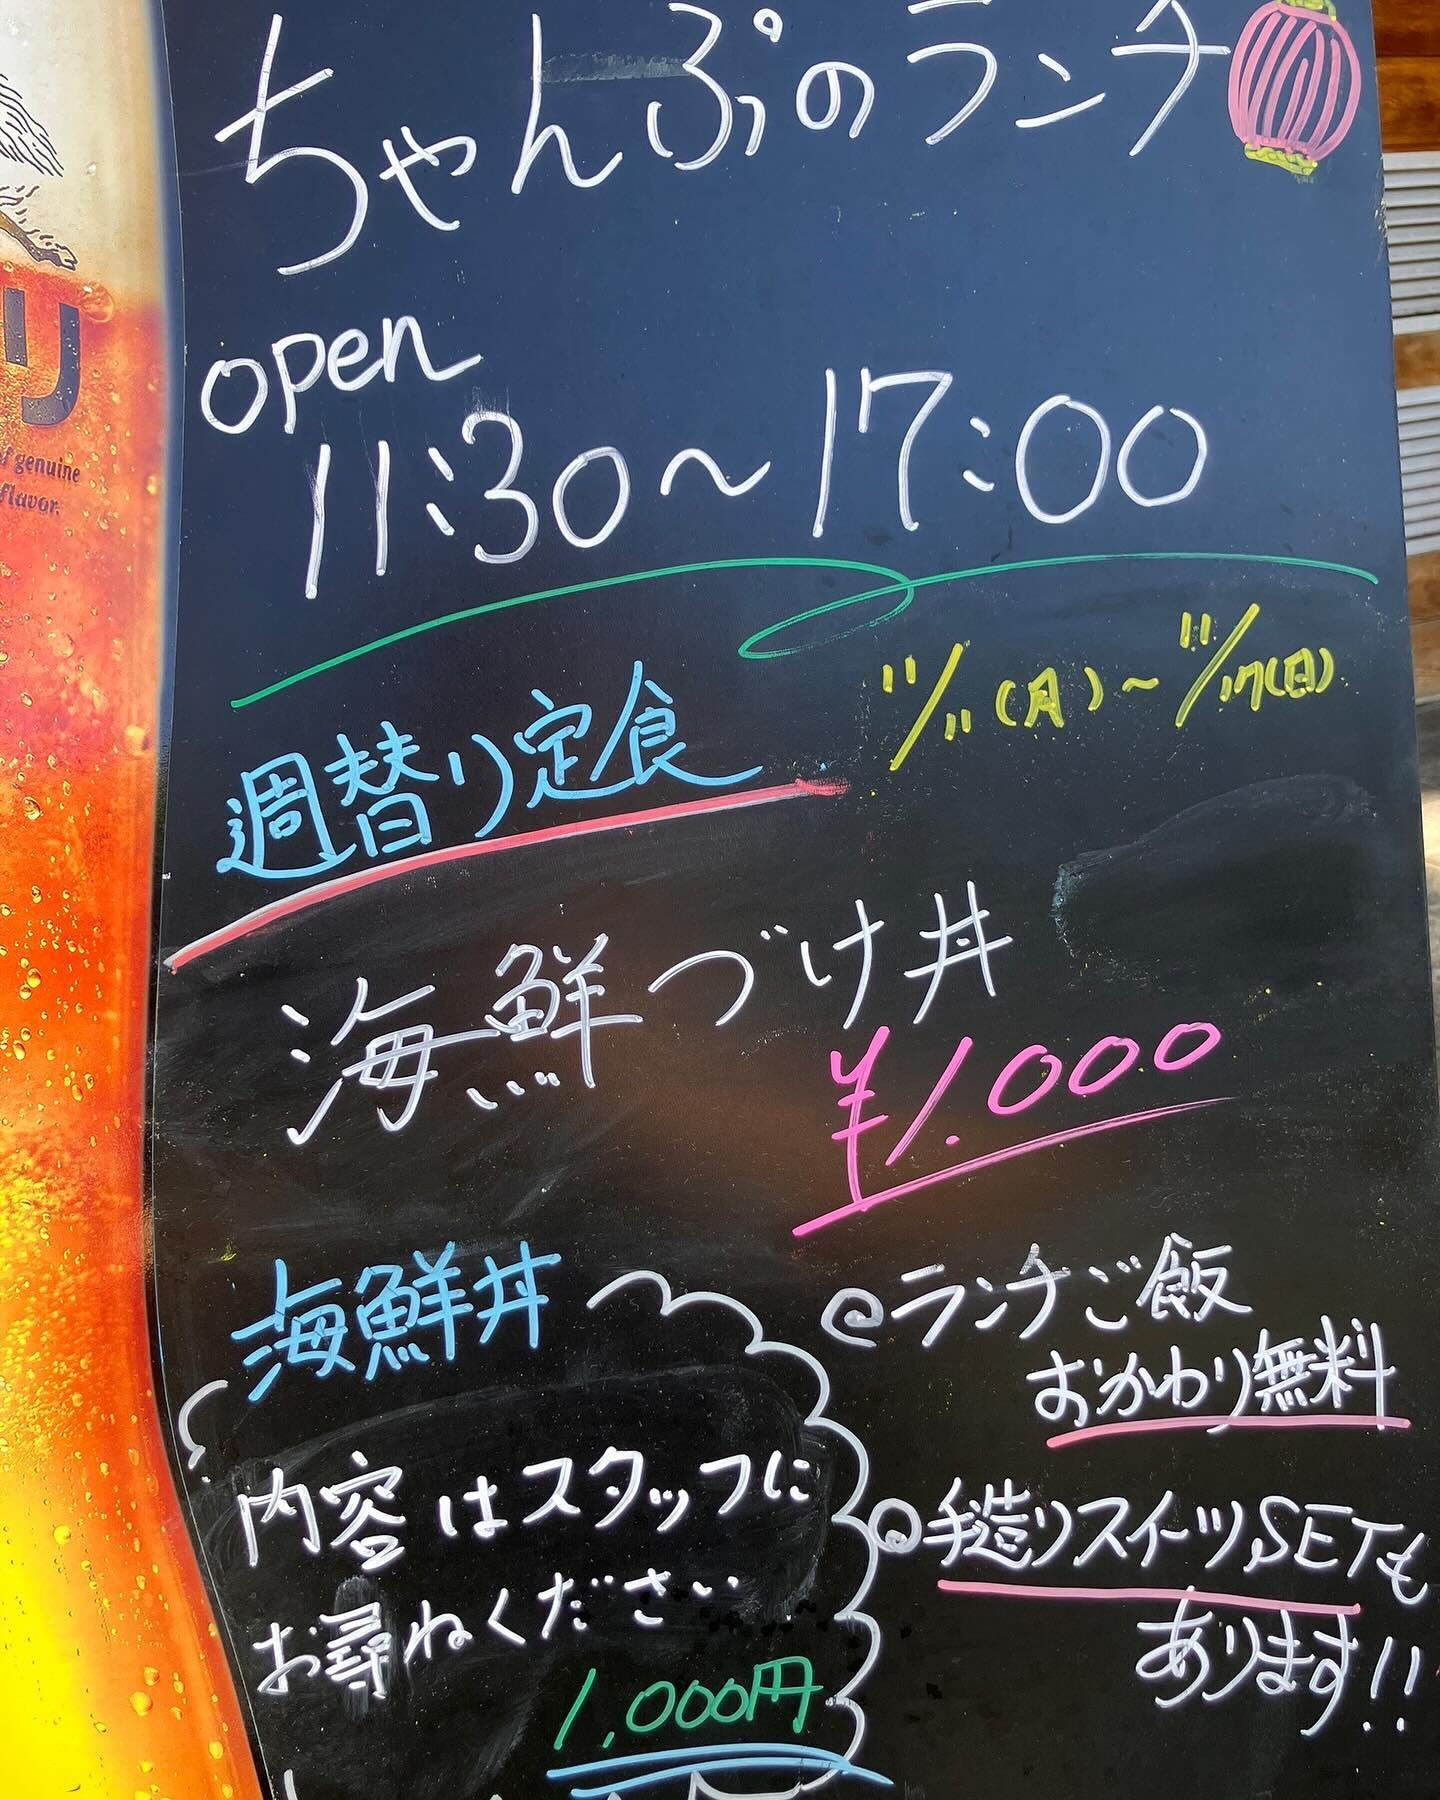 ちゃんぷのランチ
open
11:30～17:00
11/11(月)～11/17(日)
週替り定食
海鮮づけ丼
¥1.000
海鮮丼
内容はスタッフに
お尋ねください
1,000円
◎ランチご飯
おかわり無料
◎手造りスイーツSETも
あります!!
リ
of genuine
flavor.